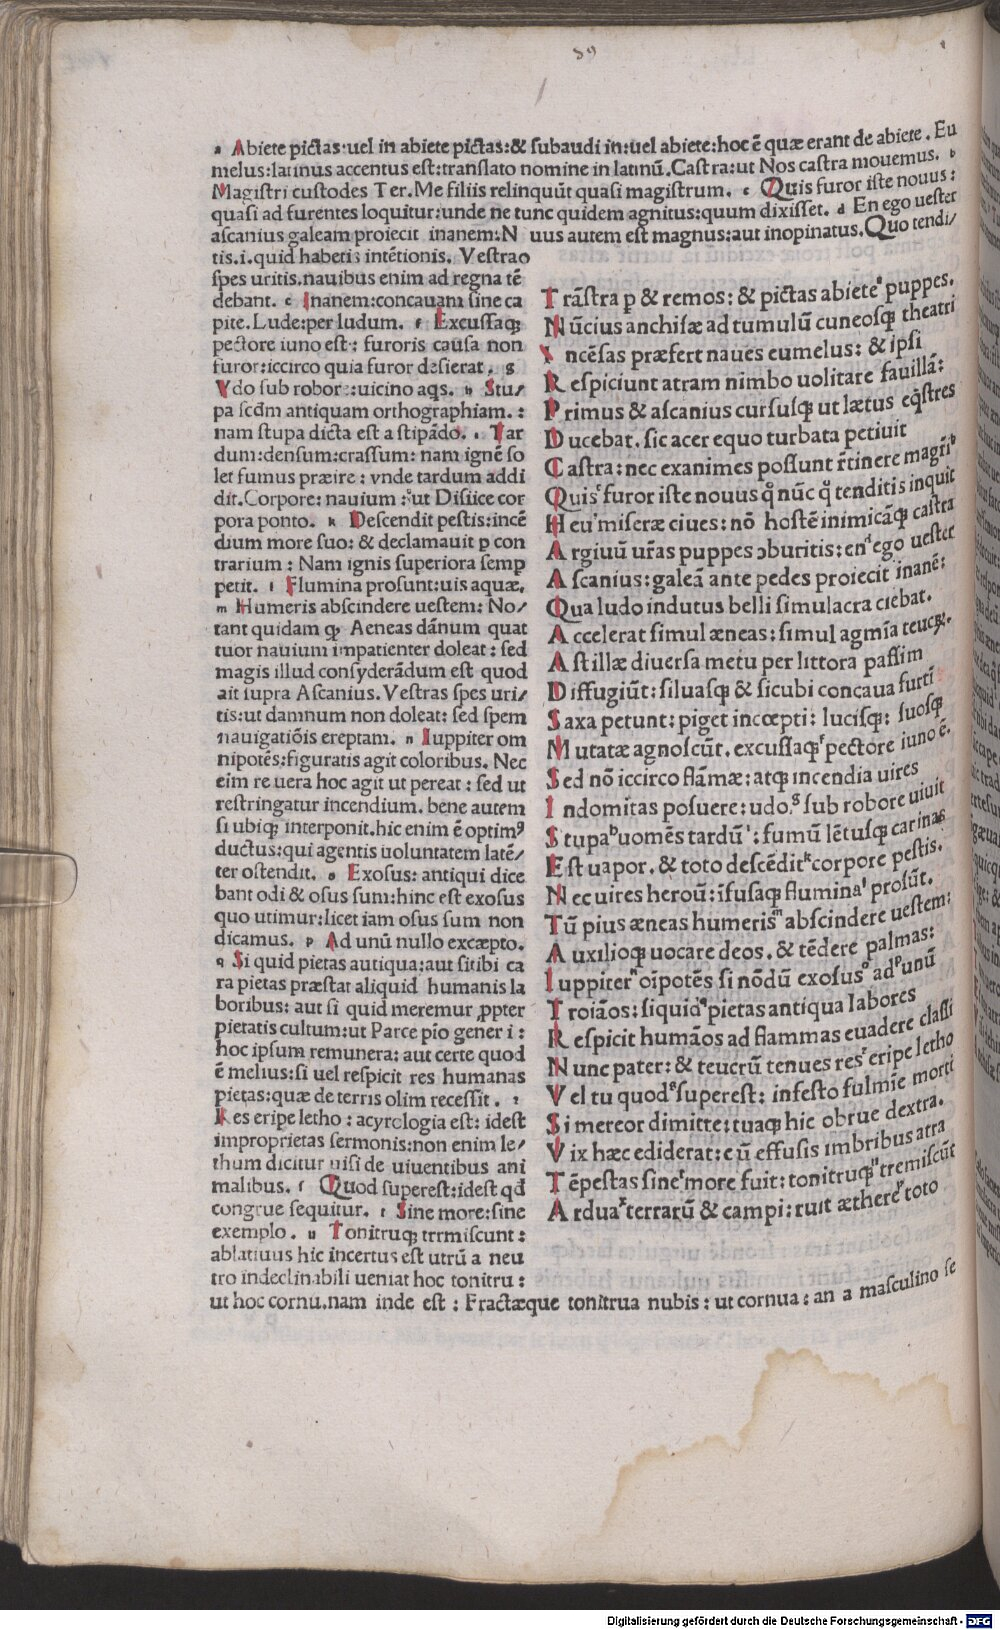 89
a Abiete pictas:uel in abiete pictas:& subaudi in:uel abiete:hoc ē quæ erant de abiete. Eu
melus:latinus accentus est:translato nomine in latinū. Castra:ut Nos castra mouemus. b
Magistri custodes Ter. Me filiis relinquūt quasi magistrum. c Quis furor iste nouus:
quasi ad furentes loquitur:unde ne tunc quidem agnitus:quum dixisset. d En ego uester
ascanius galeam proiecit inanem:N uus autem est magnus:aut inopinatus. Quo tendi/
tis.i.quid habetis intētionis. Vestrao
spes uritis.nauibus enim ad regna tē
debant. e Inanem:concauam sine ca
pite. Lude:per ludum. f Excussaqȝ
pectore iuno est: furoris causa non
furor:iccirco quia furor desierat. g
Vdo sub robore:uicino aqs. h Stu/
pa scdm antiquam orthographiam. :
nam stupa dicta est a stipādo. i Tar
dum:densum:crassum: nam ignē so
let fumus præire : vnde tardum addi
dit. Corpore: nauium : ut Disiice cor
pora ponto. k Descendit pestis:incē
dium more suo: & declamauit p con
trarium : Nam ignis superiora semp
petit. l Flumina prosunt:uis aquæ.
m Humeris abscindere uestem: No/
tant quidam qȝ Aeneas dānum quat
tuor nauium impatienter doleat : sed
magis illud consyderādum est quod
ait supra Ascanius. Vestras spes uri/
tis:ut damnum non doleat: sed spem
nauigatiōis ereptam. n Iuppiter om
nipotēs:figuratis agit coloribus. Nec
eīm re uera hoc agit ut pereat : sed ut
restringatur incendium. bene autem
si ubiqȝ interponit.hic enim ē optimꝰ
ductus:qui agentis uoluntatem latē/
ter ostendit. o Exosus: antiqui dice
bant odi & osus sum:hinc est exosus
quo utimur:licet iam osus sum non
dicamus. p Ad unū nullo excæpto.
q Si quid pietas autiqua:aut si tibi ca
ra pietas præstat aliquid humanis la
boribus: aut si quid meremur ꝓpter
pietatis cultum:ut Parce pio gener i :
hoc ipsum remunera: aut certe quod
ē melius:si uel respicit res humanas
pietas:quæ de terris olim recessit. r
Res eripe letho : acyrologia est: idest
improprietas sermonis:non enim le/
thum dicitur nisi de uiuentibus ani
malibus. s Quod superest:idest qd
congrue sequitur. t Sine more:sine
exemplo. u Tonitruqȝ trrmiscunt :
ablatiuus hic incertus est utrū a neu
tro indeclinabili ueniat hoc tonitru :
ut hoc cornu.nam inde est : Fractæque tonitrua nubis: ut cornua: an a masculino se
T rāstra p & remos: & pictas abieteᵃ puppes.
N ūcius anchisæ ad tumulū cuneosqȝ theatri
I ncēsas præfert naues eumelus: & ipsi
R espiciunt atram nimbo uolitare fauillā:
P rimus & ascanius cursusqȝ ut lætus eq̄stres
D ucebat. sic acer equo turbata petiuit
C astra: nec exanimes possunt r̄tinere magr̄iᵇ
Quisᶜ furor iste nouus qͦ nūc qͦ tenditis inquit
H eu miseræ ciues: nō hostē inimicāqȝ castra
A rgiuū ur̄as puppes ɔburitis: enᵈ ego uester
A scanius: galeā ante pedes proiecit inanē:
Qua ludo indutus belli simulacra ciebat.
A ccelerat simul æneas: simul agmīa teucꝝ.
A st illæ diuersa metu per littora passim
D iffugiūt: siluasqȝ & sicubi concaua furti
S axa petunt: piget incœpti: lucisqȝ: suosqȝ
M utatæ agnoscūt. excussaqȝᶠ pectore iuno ē.
S ed nō iccirco flāmæ: atqȝ incendia uires
I ndomitas posuere: udoᵍ sub robore uiuit
S tupaʰ uomēs tardūⁱ: fumū lētusqȝ carinas
E st uapor. & toto descēditᵏ corpore pestis.
N ec uires heroū: īfusaqȝ fluminaˡ prosūt.
T ū pius æneas humerisᵐ abscindere uestem:
A uxilioqȝ uocare deos. & tēdere palmas:
I uppiterⁿ oīpotēs si nōdū exosusᵒ adᵖ unū
T roiāos: siquid pietas antiqua labores
R espicit humāos ad flammas euadere classi
N unc pater: & teucrū tenues resʳ eripe letho
V el tu quodˢ superest: infesto fulmīe morti
S i mereor dimitte: tuaqȝ hic obrue dextra.
V ix hæc ediderat: cū effusis imbribus atra
T ēpestas sineᵗ more fuit: tonitruqȝᵘ tremiscūt
A rdua terrarū & campi: ruit æthere toto
Digitalisierung gefördert durch die Deutsche Forschungsgemeinschaft - DFG